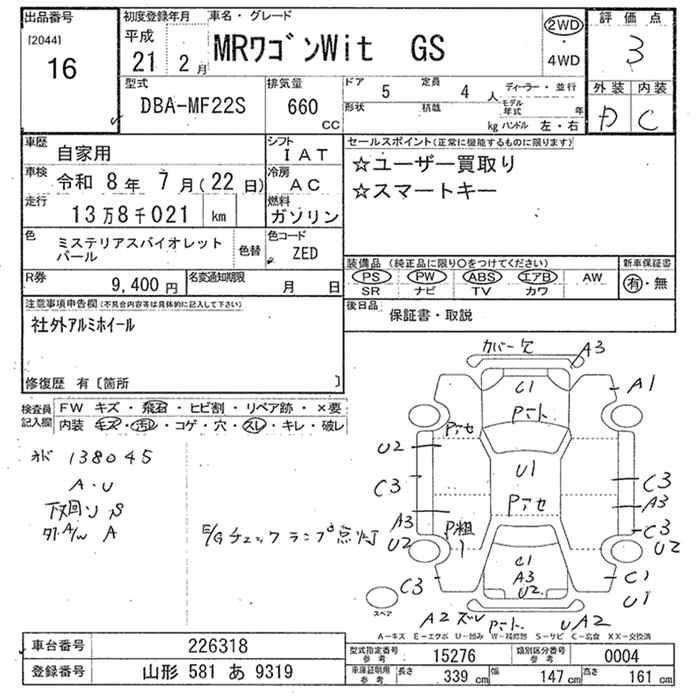 出品番号
[2044]
16
初度登録年月
平成
21 2月
車名・グレード
MRワゴンWit GS
2WD
・
4WD
評価点
3
外装 内装
D C
型式
DBA-MF22S
排気量
660
CC
ドア 5 定員 4 人
形状 積載 kg
ディーラー・並行
モデル年式 年
ハンドル 左・右
車歴
自家用
シフト
IAT
車検
令和 8年 7月(22日)
冷房
AC
走行
13万8千021 km
燃料
ガソリン
色
ミステリアスバイオレット
パール
色替
色コード
ZED
R券
9,400円
名変通知期限
月 日
セールスポイント(正常に機能するものに限ります)
☆ユーザー買取り
☆スマートキー
装備品 (純正品に限り○をつけてください)
PS PW ABS エアB AW
SR ナビ TV カワ
新車保証書
有・無
後日品
保証書・取説
注意事項申告欄(不具合内容等は具体的に記入して下さい)
社外アルミホイール
修復歴 有〔箇所 〕
検査員
記入欄
FW キズ・飛石・ヒビ割・リペア跡・×要
内装 キズ・汚レ・コゲ・穴・スレ・キレ・破レ
138045
A・U
下回り S
A
E/Gチェックランプ点灯
カバー欠
A3
A1
C1
Pート
Pアセ
U2
U1
C3
C3
A3
Pアセ
A3
C3
U2
U2
P粗
C1
A3
U2
C3
C1
U1
スペア
A2 ズレ
Pート
UA2
A-キズ E-エクボ U-凹み W-補修跡 S-サビ C-腐食 XX-交換済
車台番号
226318
登録番号
山形 581 あ 9319
型式指定番号
参考
15276
類別区分番号
参考
0004
車庫証明用
参考
長さ 339cm 幅 147cm 高さ 161cm